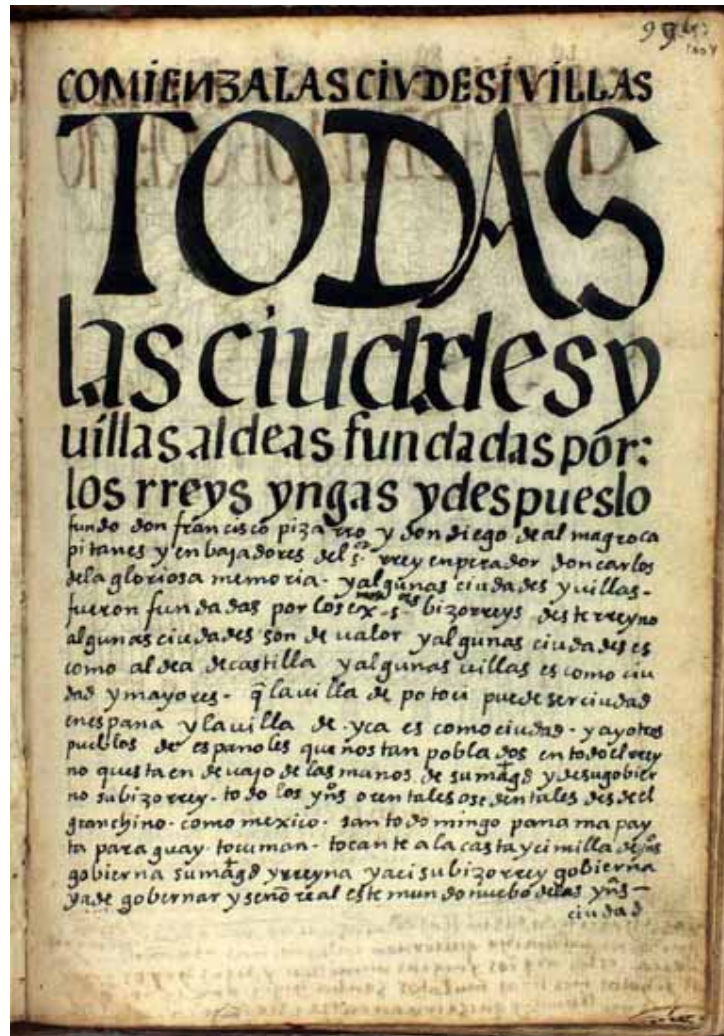 COMIENZALAS CIVDESIVILLAS
TODAS
las ciudades y
uillas aldeas fundadas por:
los rreys yngas y despues lo
fundo don francisco pizarro y don diego de almagro ca
pitanes y enbajadores del s.or rrey enperador don carlos
de la gloriosa memoria. y algunas ciudades y uillas-
fueron fundadas por los exmos s.es bizorreys deste rreyno
algunas ciudades son de ualor y algunas ciudades es
como aldea de castilla y algunas uillas es como ciu
dad y mayores. q̃ la uilla de potoci puede ser ciudad
en espana y la uilla de yca es como ciudad. y ay otros
pueblos de espanoles que nostan poblados en todo el rrey
no questa en deuajo de las manos de su mag.d y de su gobier
no su bizorrey. todo los yn̄s orentales osedentales desde el
gran chino. como mexico. santo domingo panama pay
ta paraguay. tocuman. tocante a la casta y cimilla de yn̄s
gobierna su mag.d y rreyna y aci su bizorrey gobierna
y a de gobernar y seno real este mundo nuebo de las yn̄s-
ciudad